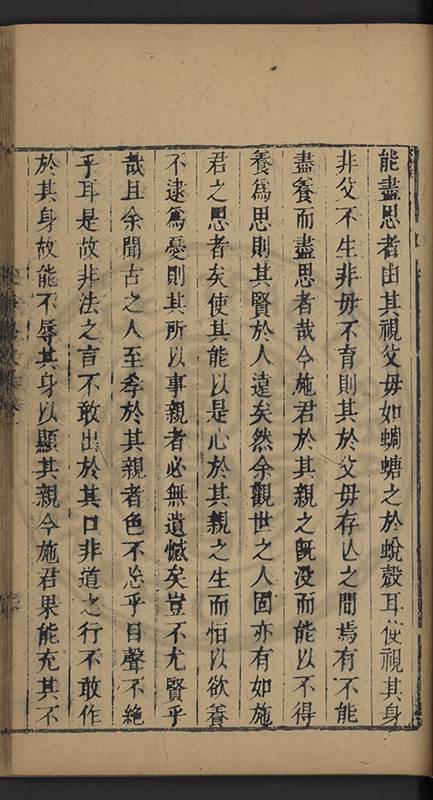 能盡思者由其視父母如蜩螗之於蛻殼耳使視其身
非父不生非母不育則其於父母存亾之間焉有不能
盡養而盡思者哉今施君於其親之旣没而能以不得
養爲思則其賢於人遠矣然余觀世之人固亦有如施
君之思者矣使其能以是心於其親之生而怕以欲養
不逮爲憂則其所以事親者必無遺憾矣豈不尤賢乎
哉且余聞古之人至孝於其親者色不忘乎目聲不絶
乎耳是故非法之言不敢出於其口非道之行不敢作
於其身故能不辱其身以顯其親今施君果能充其不